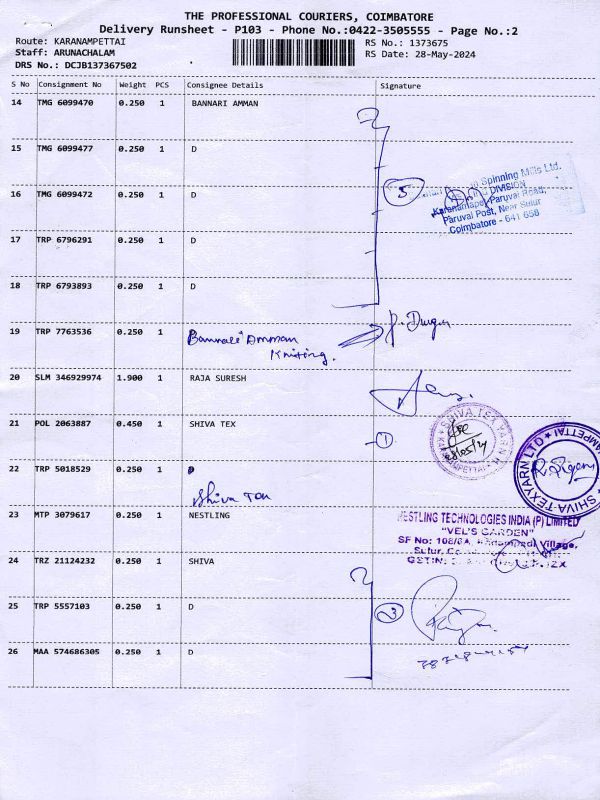 THE PROFESSIONAL COURIERS, COIMBATORE
Delivery Runsheet - P103 - Phone No.:0422-3505555 - Page No.:2
Route: KARANAMPETTAI
Staff: ARUNACHALAM
DRS No.: DCJB137367502
RS No.: 1373675
RS Date: 28-May-2024
S No Consignment No Weight PCS Consignee Details Signature
14 TMG 6099470 0.250 1 BANNARI AMMAN
15 TMG 6099477 0.250 1 D
5 Spinning Mills Ltd.
DIVISION
16 TMG 6099472 0.250 1 D
Paruval Road,
Paruval Post, Near Sulur
Coimbatore - 641 658
17 TRP 6796291 0.250 1 D
18 TRP 6793893 0.250 1 D
19 TRP 7763536 0.250 1 Bannari Amman
Knitting.
20 SLM 346929974 1.900 1 RAJA SURESH
21 POL 2063887 0.450 1 SHIVA TEX
1
SHIVA TEXYARN LTD
22 TRP 5018529 0.250 1
Shiva Tex
23 MTP 3079617 0.250 1 NESTLING
NESTLING TECHNOLOGIES INDIA (P) LIMITED
"VEL'S GARDEN"
SF No: 108/6A, Village,
Sulur,
24 TRZ 21124232 0.250 1 SHIVA
25 TRP 5557103 0.250 1 D
3
26 MAA 574686305 0.250 1 D